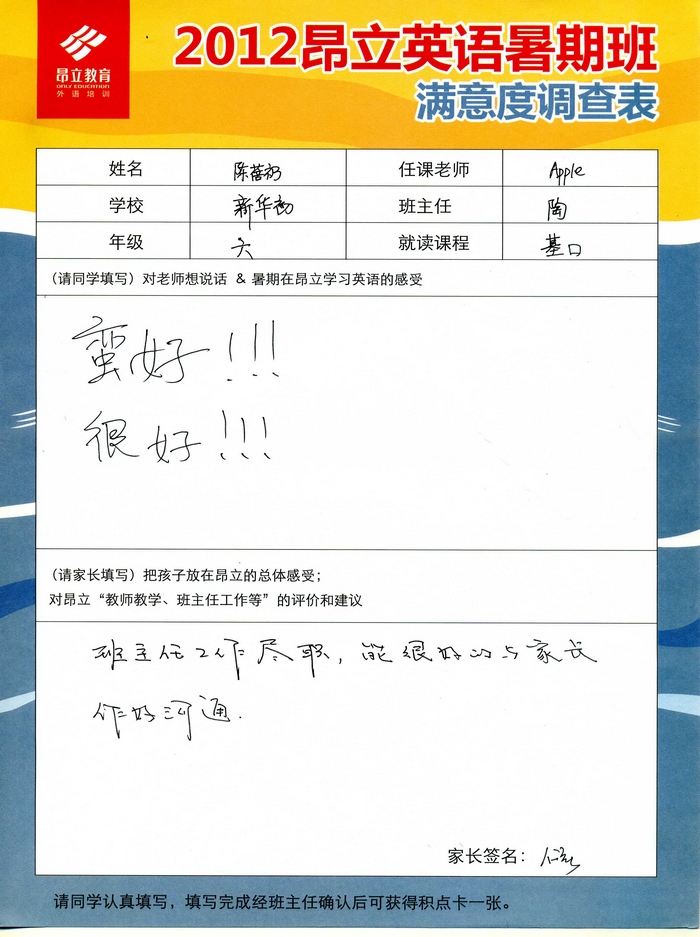 昂立教育
ONLY EDUCATION
外语培训
2012昂立英语暑期班
满意度调查表
姓名 陈蓓 任课老师 Apple
学校 新华初 班主任 陶
年级 六 就读课程 基口
(请同学填写)对老师想说话 & 暑期在昂立学习英语的感受
蛮好!!!
很好!!!
(请家长填写)把孩子放在昂立的总体感受;
对昂立“教师教学、班主任工作等”的评价和建议
班主任工作尽职,能很好的与家长
作好沟通.
家长签名:
请同学认真填写,填写完成经班主任确认后可获得积点卡一张。